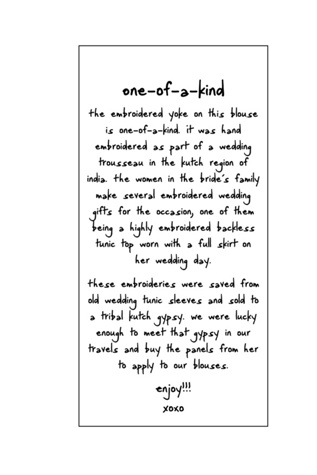 one-of-a-kind
the embroidered yoke on this blouse
is one-of-a-kind. it was hand
embroidered as part of a wedding
trousseau in the kutch region of
india. the women in the bride's family
make several embroidered wedding
gifts for the occasion, one of them
being a highly embroidered backless
tunic top worn with a full skirt on
her wedding day.
these embroideries were saved from
old wedding tunic sleeves and sold to
a tribal kutch gypsy. we were lucky
enough to meet that gypsy in our
travels and buy the panels from her
to apply to our blouses.
enjoy!!!
xoxo